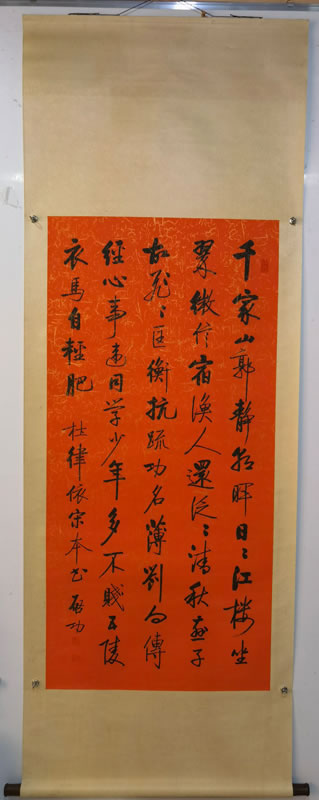 千家山郭靜朝暉日〻江樓坐
翠微信宿漁人還泛〻清秋燕子
故飛〻匡衡抗疏功名薄劉向傳
經心事違同学少年多不賤五陵
衣馬自輕肥 杜律依宋本书 启功